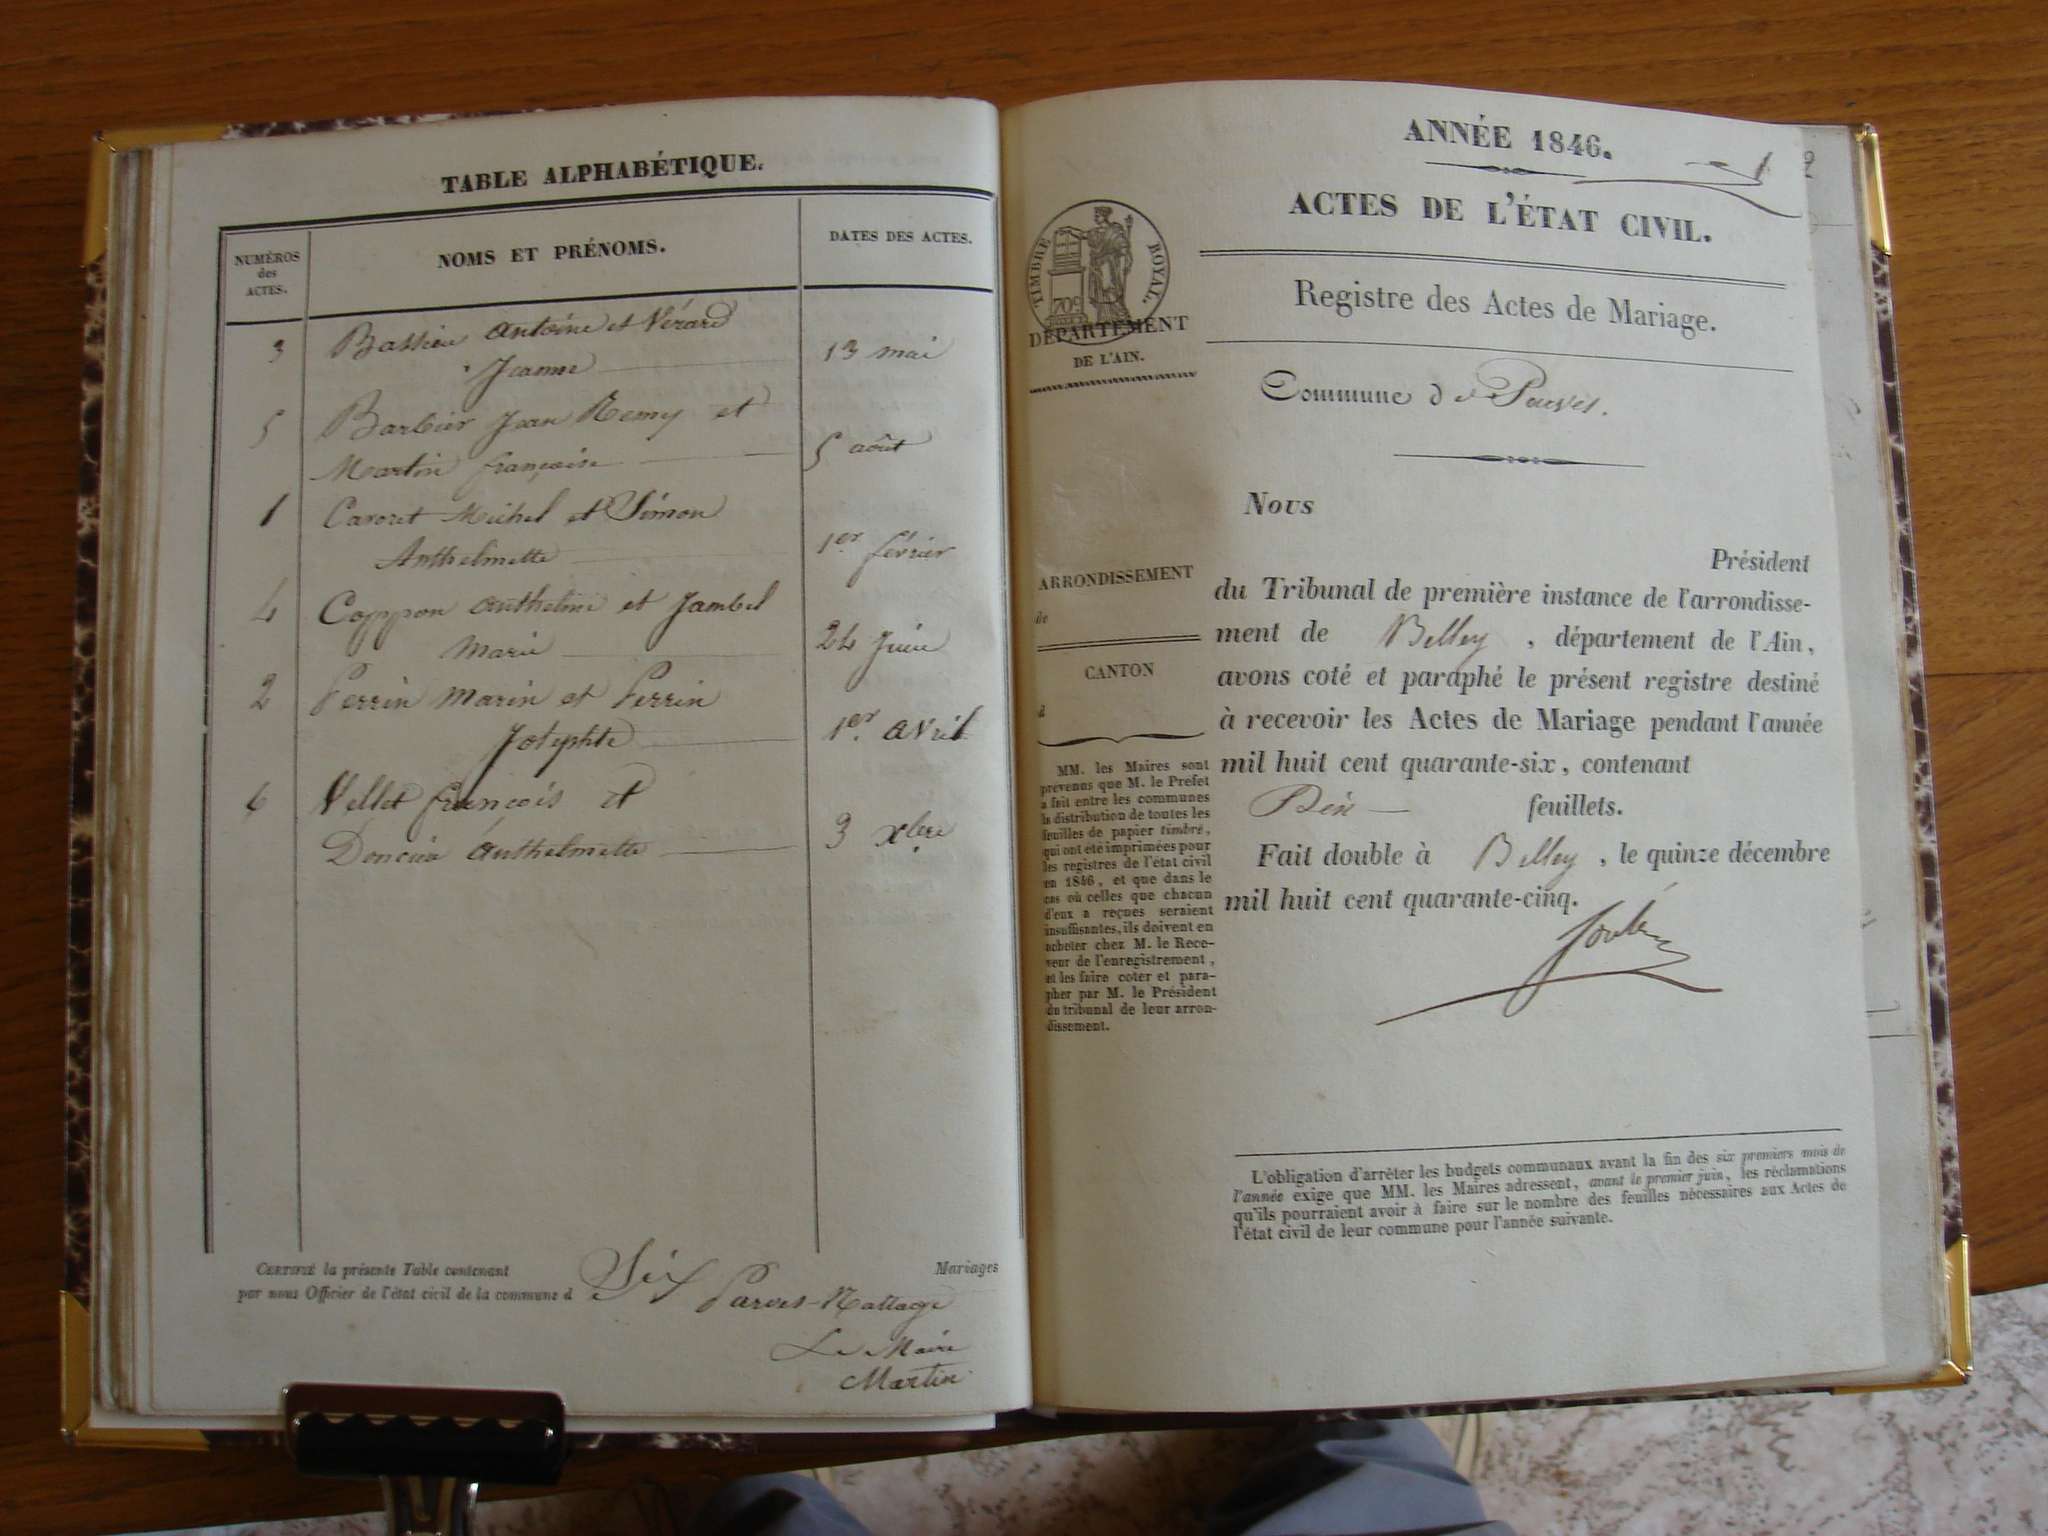 TABLE ALPHABÉTIQUE.
NUMÉROS
des
ACTES.
NOMS ET PRÉNOMS.
DATES DES ACTES.
3 Bassieu Antoine et Vérard
Jeanne 13 mai
5 Barbier Jean Remy et
Martin françoise 5 août
1 Cavoret Michel et Simon
Anthelmette 1er février
4 Coppon anthelme et Jambel
Marie 24 Juin
2 Perrin Marin et Perrin
Josephte 1er avril
6 Vellet françois et
Doncieu Anthelmette 3 xbre
CERTIFIÉ la présente Table contenant Six Mariages
par nous Officier de l'état civil de la commune de Parves-Nattage
Le Maire
Martin
ANNÉE 1846.
1 2
ACTES DE L'ÉTAT CIVIL.
TIMBRE ROYAL.
70c
Registre des Actes de Mariage.
DÉPARTEMENT
DE L'AIN.
Commune de Parves.
Nous
Président
ARRONDISSEMENT
de
CANTON
d
du Tribunal de première instance de l'arrondisse-
ment de Belley, département de l'Ain,
avons coté et paraphé le présent registre destiné
à recevoir les Actes de Mariage pendant l'année
mil huit cent quarante-six, contenant
feuillets.
Fait double à Belley, le quinze décembre
mil huit cent quarante-cinq.
MM. les Maires sont
prévenus que M. le Prefet
a fait entre les communes
la distribution de toutes les
feuilles de papier timbré,
qui ont été imprimées pour
les registres de l'état civil
en 1846, et que dans le
cas où celles que chacun
d'eux a reçues seraient
insuffisantes, ils doivent en
acheter chez M. le Rece-
veur de l'enregistrement,
et les faire coter et para-
pher par M. le Président
du tribunal de leur arron-
dissement.
L'obligation d'arrêter les budgets communaux avant la fin des six premiers mois de
l'année exige que MM. les Maires adressent, avant le premier juin, les réclamations
qu'ils pourraient avoir à faire sur le nombre des feuilles nécessaires aux Actes de
l'état civil de leur commune pour l'année suivante.